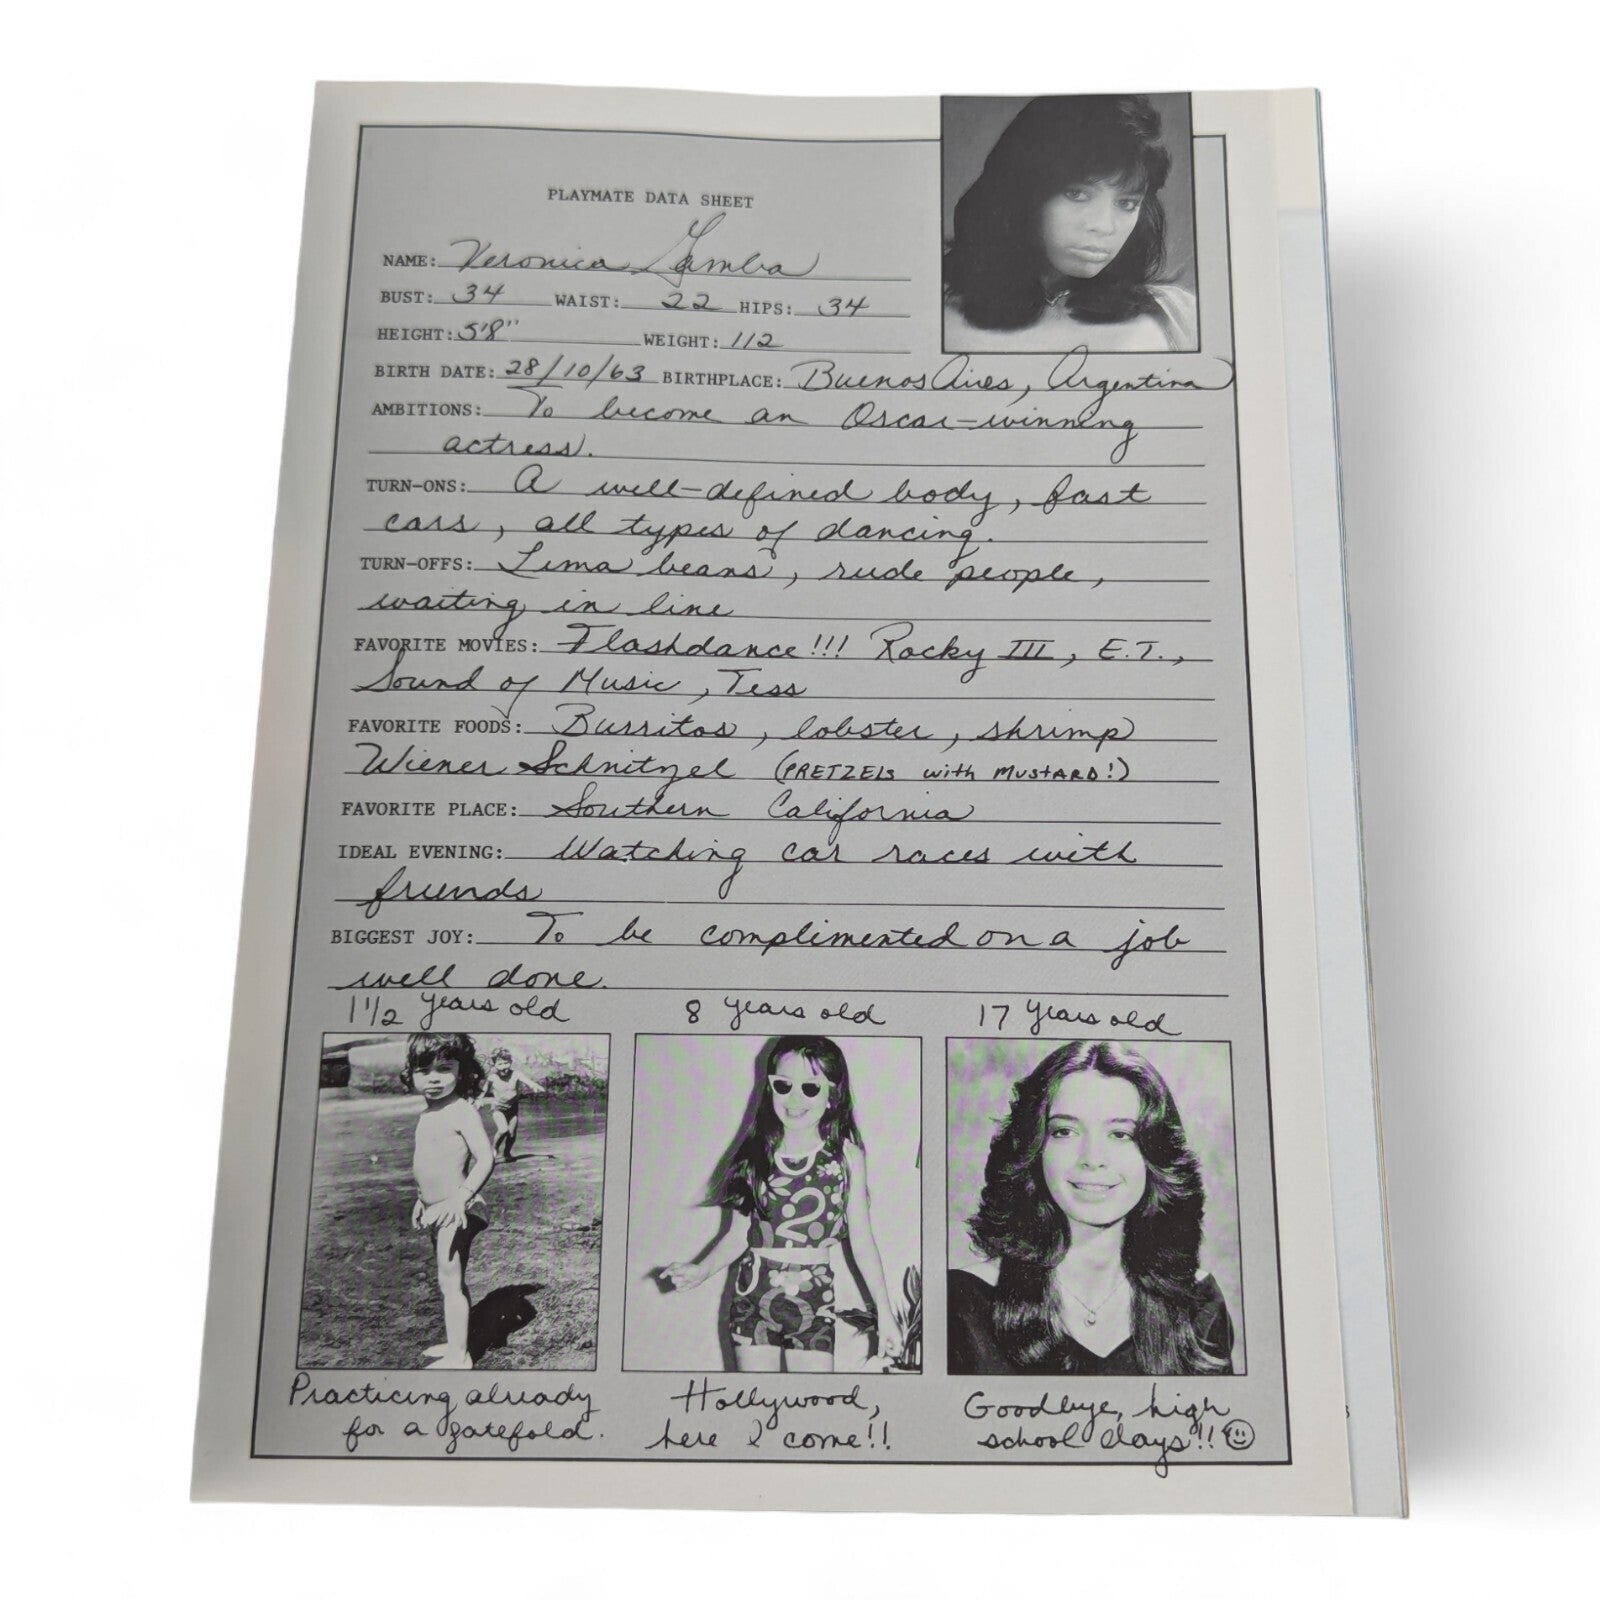 PLAYMATE DATA SHEET
NAME: Veronica Gamba
BUST: 34 WAIST: 22 HIPS: 34
HEIGHT: 5'8" WEIGHT: 112
BIRTH DATE: 28/10/63 BIRTHPLACE: Buenos Aires, Argentina
AMBITIONS: To become an Oscar-winning
actress.
TURN-ONS: A well-defined body, fast
cars, all types of dancing.
TURN-OFFS: Lima beans, rude people,
waiting in line
FAVORITE MOVIES: Flashdance!!! Rocky III, E.T.,
Sound of Music, Tess
FAVORITE FOODS: Burritos, lobster, shrimp
Wiener Schnitzel (PRETZELS with MUSTARD!)
FAVORITE PLACE: Southern California
IDEAL EVENING: Watching car races with
friends
BIGGEST JOY: To be complimented on a job
well done.
1 1/2 years old 8 years old 17 years old
Practicing already
for a gatefold.
Hollywood,
here I come!!
Goodbye, high
school days!!